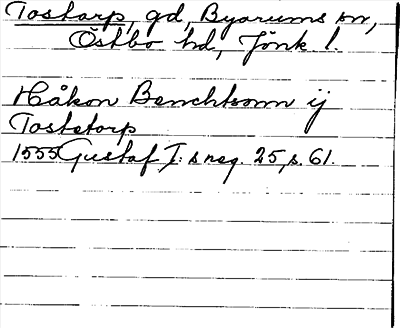 Tostarp, gd, Byarums sn,
Östbo hd, Jönk l.
Håkon Benchtsonn ij
Tostetorp
1555 Gustaf I:s reg. 25, s. 61.